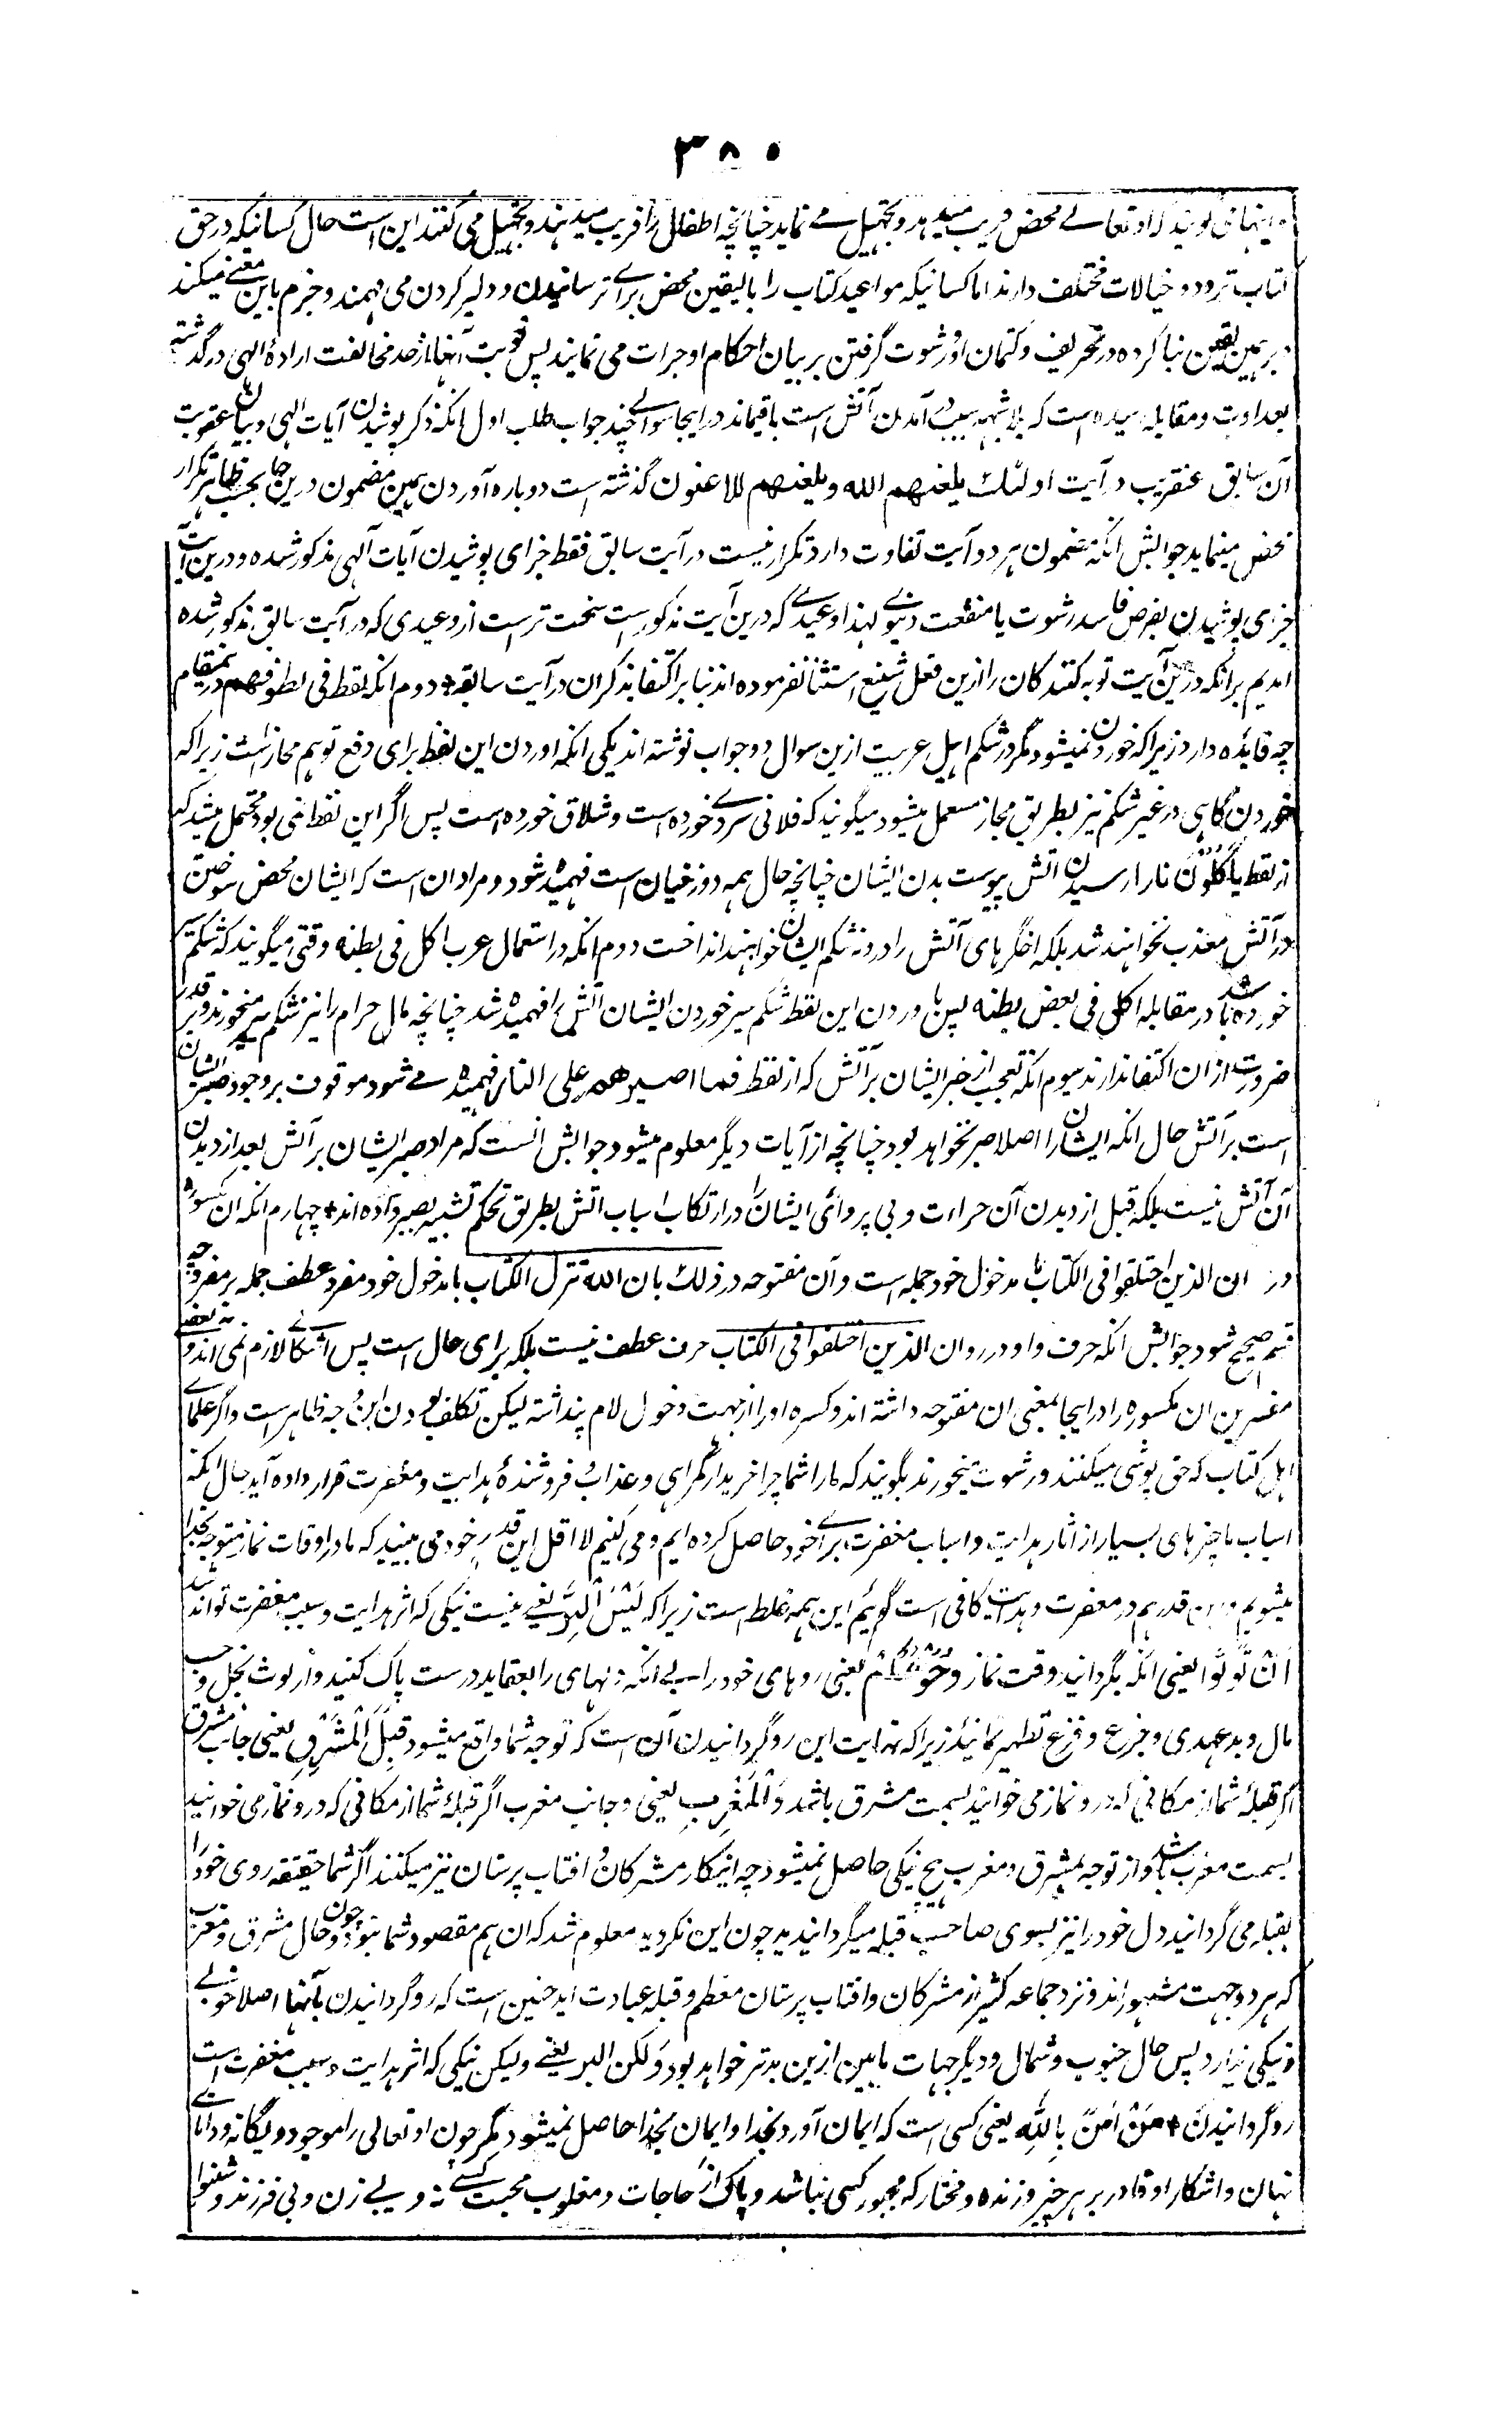 ۳۸۰
اینها میگویند که او تعالے محض فریب میدهد و تجهیل مے نماید چنانچه اطفال را فریب میدهند و تجهیل می کنند این است حال کسانیکه در حق
کتاب تردد و خیالات مختلف دارند اما کسانیکه مواعید کتاب را بالیقین محض براے ترسانیدن و دلیر کردن می فهمند و جزم باین معنے میکنند
و بر همین یقین بنا کرده در تحریف و کتمان او و رشوت گرفتن بر بیان احکام او جرات می نمایند پس نوبت آنها از حد مخالفت ارادۀ الهی در گذشته
بعداوت و مقابله رسیده است که بلا شبهه سبب در آمدن آتش است باقیماند در اینجا سوالے چند جواب طلب اول آنکه ذکر پوشیدن آیات الهی و بیان عقوبت
آن سابق عنقریب در آیت اولئك یلعنهم الله و یلعنهم اللاعنون گذشته است دوباره آوردن همین مضمون درین جا بحسب ظاهر تکرار
محض مینماید جوابش آنکه مضمون هر دو آیت تفاوت دارد تکرار نیست در آیت سابق فقط جزای پوشیدن آیات آلهی مذکور شده و درین آیت
جزای پوشیدن بغرض فاسد رشوت یا منفعت دنیوے لهذا وعیدے که درین آیت مذکور است سخت تر است از وعیدی که در آیت سابق مذکور شده
آمدیم بر آنکه درین آیت توبه کنندگان را ازین فعل شنیع استثنا نفرموده اند بنا بر اکتفا بذکر آن در آیت سابقه + دوم آنکه لفظ فی بطونهم درین مقام
چه فایده دارد زیرا که خوردن نمیشود مگر در شکم اهل عربیت ازین سوال دو جواب نوشته اند یکی آنکه آوردن این لفظ برای دفع توهم مجاز است زیرا که
خوردن گاهی در غیر شکم نیز بطریق مجاز مستعمل میشود میگویند که فلانی سردے خورده است و شلاق خورده است پس اگر این لفظ نمی بود محتمل میشد که
از لفظ یَاْکُلُوْنَ نار ارسیدن آتش بپوست بدن ایشان چنانچه حال همه دوزخیان است فهمیده شود و مراد آن است که ایشان محض سوختن
در آتش معذب نخواهند شد بلکه اخگرهای آتش را درون شکم ایشان خواهند انداخت دوم آنکه در استعمال عرب اکل فی بطنه وقتی میگویند که شکم سیر
خورده باشد در مقابله اکل فی بعض بطنه پس بآوردن این لفظ شکم سیر خوردن ایشان آتش را فهمیده شد چنانچه مال حرام را نیز شکم سیر میخورند و بر قدر
ضرورت ازان اکتفا ندارند سیوم آنکه تعجب از صبر ایشان بر آتش که از لفظ فما اصبرهم علی النار فهمیده مے شود موقوف بر وجود صبر ایشان
است بر آتش حال آنکه ایشان را اصلا صبر نخواهد بود چنانچه از آیات دیگر معلوم میشود جوابش آنست که مراد صبر ایشان بر آتش بعد از دیدن
آن آتش نیست بلکه قبل از دیدن آن جراءت و بی پروائی ایشان را در ارتکاب اسباب آتش بطریق تحکم تشبیه بصبر داده اند + چهارم آنکه ان مکسوره
در ان الذین اختلفوا فی الکتاب با مدخول خود جمله است و ان مفتوحه در ذلك بان الله نزل الکتاب با مدخول خود مفرد عطف جمله بر مفرد چه
قسم صحیح شود جوابش آنکه حرف واو در و ان الذین اختلفوا فی الکتاب حرف عطف نیست بلکه برای حال است پس اشکالے لازم نمی آید و بعضے
مفسرین ان مکسوره را در اینجا بمعنی ان مفتوحه داشته اند و کسره او را از جهت دخول لام پنداشته لیکن تکلف بودن این وجه ظاهر است و اگر علماے
اهل کتاب که حق پوشی میکنند و رشوت میخورند بگویند که ما را شما چرا خریدار گمراهی و عذاب و فروشندۀ هدایت و مغفرت قرار داده آید حال آنکه
اسباب ما چیزهای بسیار از آثار هدایت و اسباب مغفرت براے خود حاصل کرده ایم و می کنیم لا اقل این قدر خود می بینید که ما در اوقات نماز متوجه بخدا
میشویم و این قدر هم در مغفرت و هدایت کافی است گوئیم این همه غلط است زیرا که لَیْسَ الْبِرَّ یعنے نیست نیکی که اثر هدایت و سبب مغفرت تواند شد
اَنْ تُوَلُّوْا یعنی آنکه بگردانید وقت نماز وُجُوْهَکُمْ یعنی روهای خود را بے آنکه دلهای را بعقاید درست پاک کنید و از لوث بخل و حب
مال و بد عهدی و جزع و فزع تطهیر نمائید زیرا که نهایت این رو گردانیدن آن است که توجه شما واقع میشود قِبَلَ الْمَشْرِقِ یعنی جانب مشرق
اگر قبلۀ شما از مکانی که در و نماز می خوانید بسمت مشرق باشد وَالْمَغْرِبِ یعنی و جانب مغرب اگر قبلۀ شما از مکانی که در و نماز می خوانید
بسمت مغرب باشد و از توجه بمشرق و مغرب هیچ نیکی حاصل نمیشود چه اینکار مشرکان و آفتاب پرستان نیز میکنند اگر شما حقیقة روی خود را
بقبله می گردانید دل خود را نیز بسوی صاحب قبله میگردانیدید چون این نکردید معلوم شد که آن هم مقصود شما نبود و چون حال مشرق و مغرب
که هر دو جهت مشهور اند و نزد جماعه کثیر از مشرکان و آفتاب پرستان معظم و قبله عبادت اند چنین است که رو گردانیدن بآنها اصلا خوبے
و نیکی ندارد پس حال جنوب و شمال و دیگر جهات مابین ازین بدتر خواهد بود وَلکن البر یعنے ولیکن نیکی که اثر هدایت و سبب مغفرت است
رو گردانیدن + مَنْ اٰمَنَ بِاللّٰهِ یعنی کسی است که ایمان آورد بخدا و ایمان بخدا حاصل نمیشود مگر چون او تعالی را موجود و یگانه و داناے
نهان و آشکار او قادر بر هر چیز و زنده و مختار که مجبور کسی نباشد و پاک از حاجات و مغلوب محبت کسے نه و بے زن و بی فرزند و شنوا